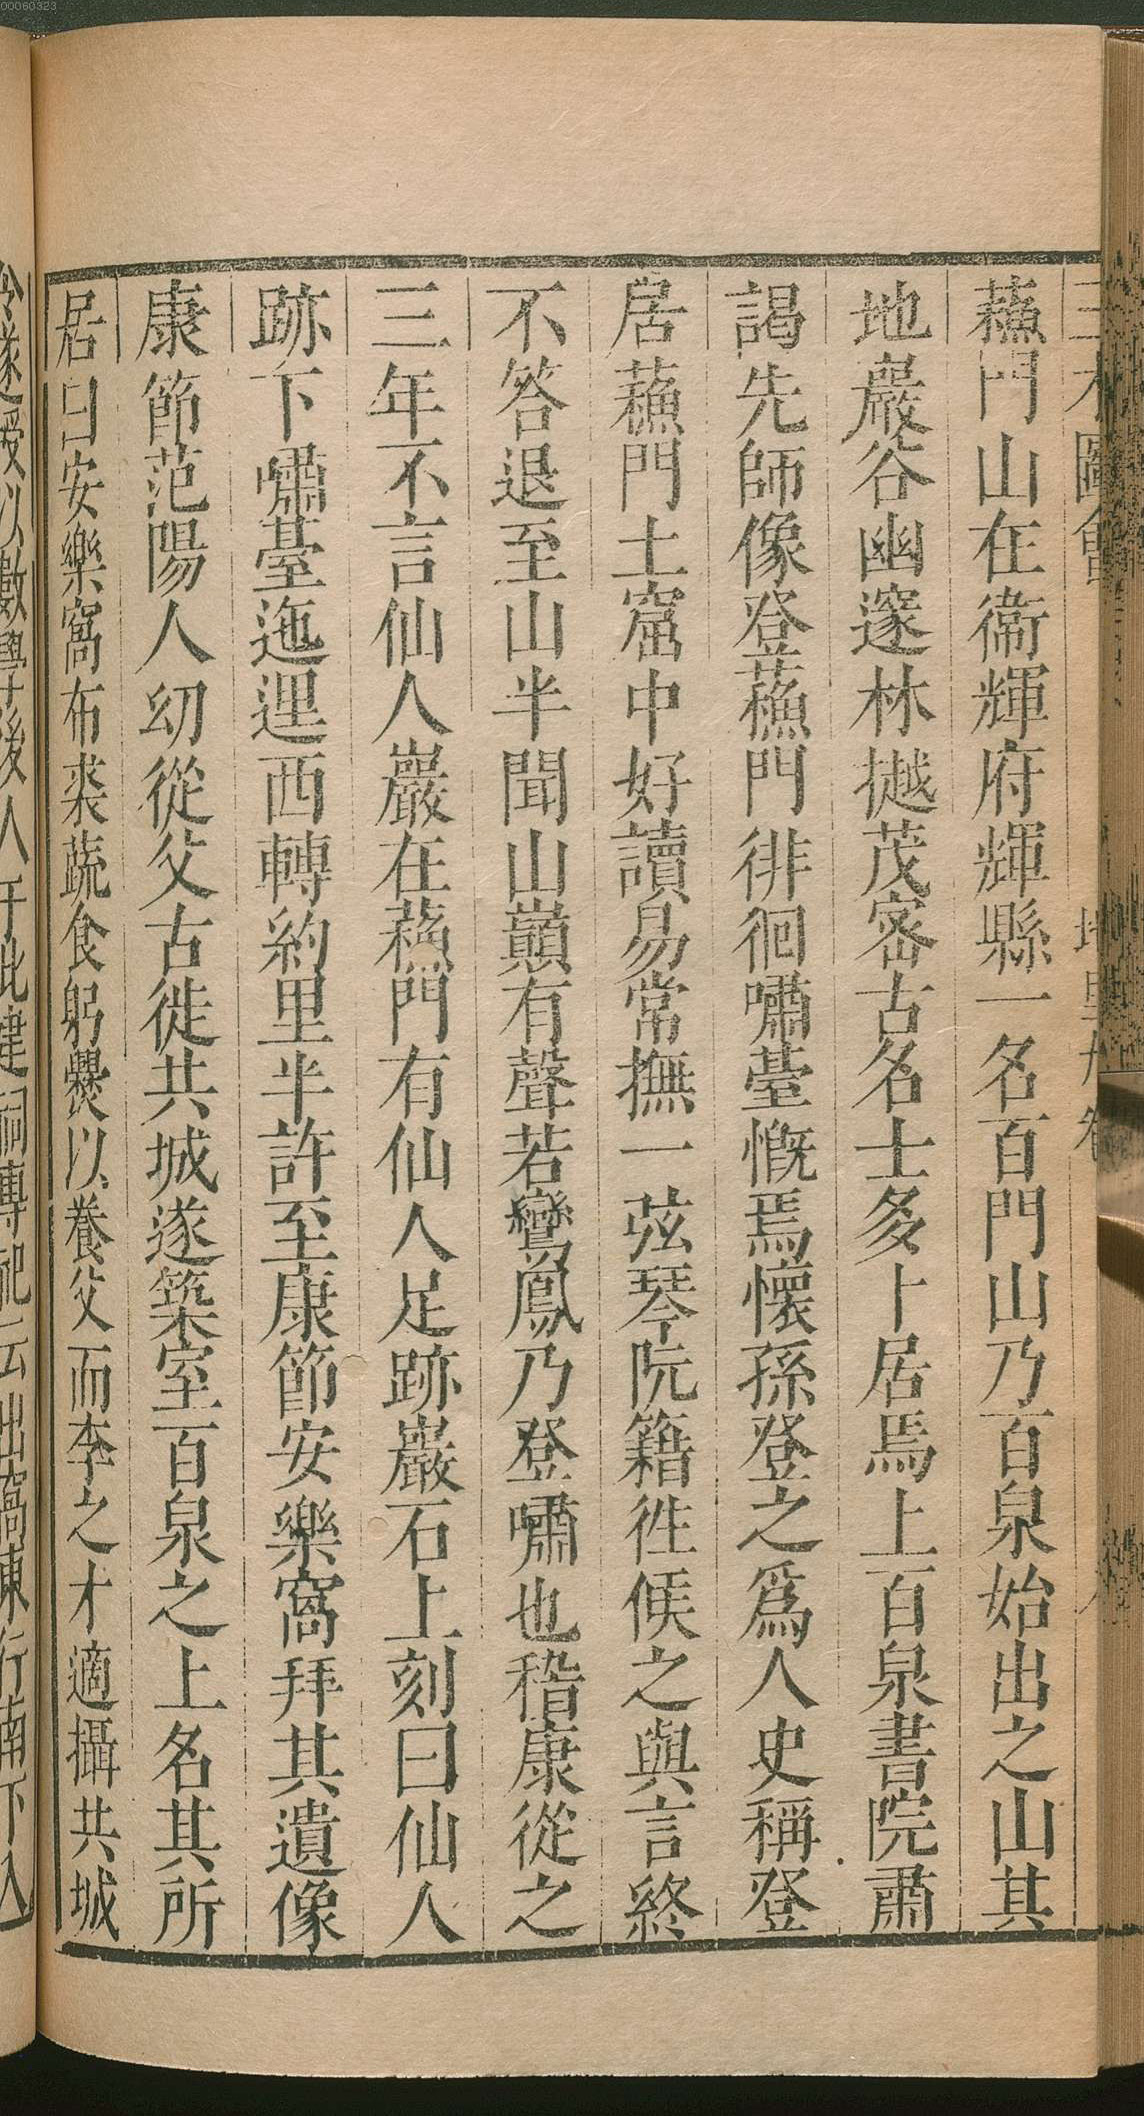 00060323
三才圖會
地里九卷
蘓門山在衞輝府輝縣一名百門山乃百泉始出之山其
地巖谷幽邃林樾茂密古名士多卜居焉上百泉書院肅
謁先師像登蘓門徘徊嘯臺慨焉懷孫登之爲人史稱登
居蘓門土窟中好讀易常撫一弦琴阮籍徃候之與言終
不答退至山半聞山巔有聲若鸞鳳乃登嘯也稽康從之
三年不言仙人巖在蘓門有仙人足跡巖石上刻曰仙人
跡下嘯臺迤逕西轉約里半許至康節安樂窩拜其遺像
康節范陽人幼從父古徙共城遂築室百泉之上名其所
居曰安樂窩布裘蔬食躬爨以養父而李之才適攝共城
令遂授以數學後人于此建祠專祀云出窩東行南下入